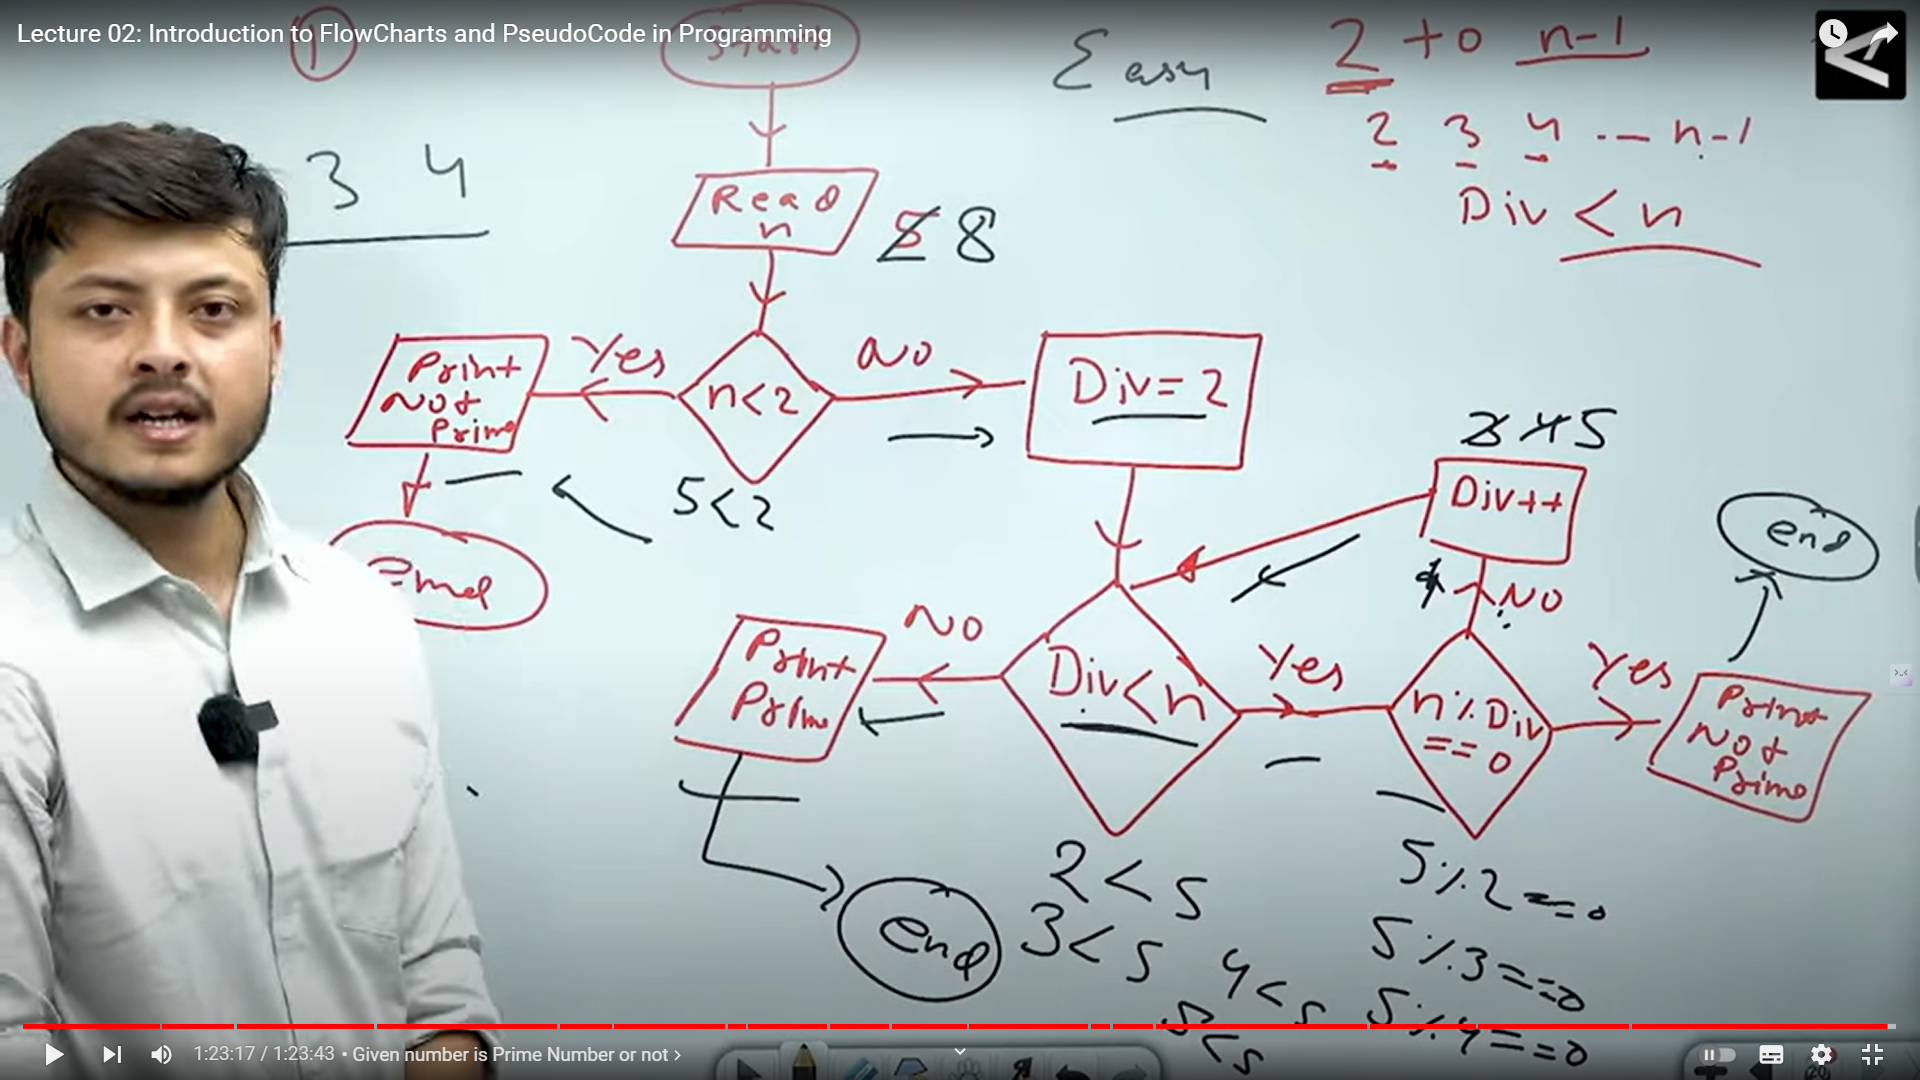 Lecture 02: Introduction to FlowCharts and PseudoCode in Programming
1
Start
Easy
2 to n-1
2 3 4 .-- n-1
Div < n
3 4
Read
n
5 8
Print
Not
Prime
Yes
n<2
No
Div=2
5<2
end
2 4 5
Div++
No
end
Print
Prime
No
Div<n
Yes
n%Div
==0
Yes
Print
Not
Prime
end
2<5
3<5
4<5
5<5
5%2==0
5%3==0
5%4==0
1:23:17 / 1:23:43 • Given number is Prime Number or not ›